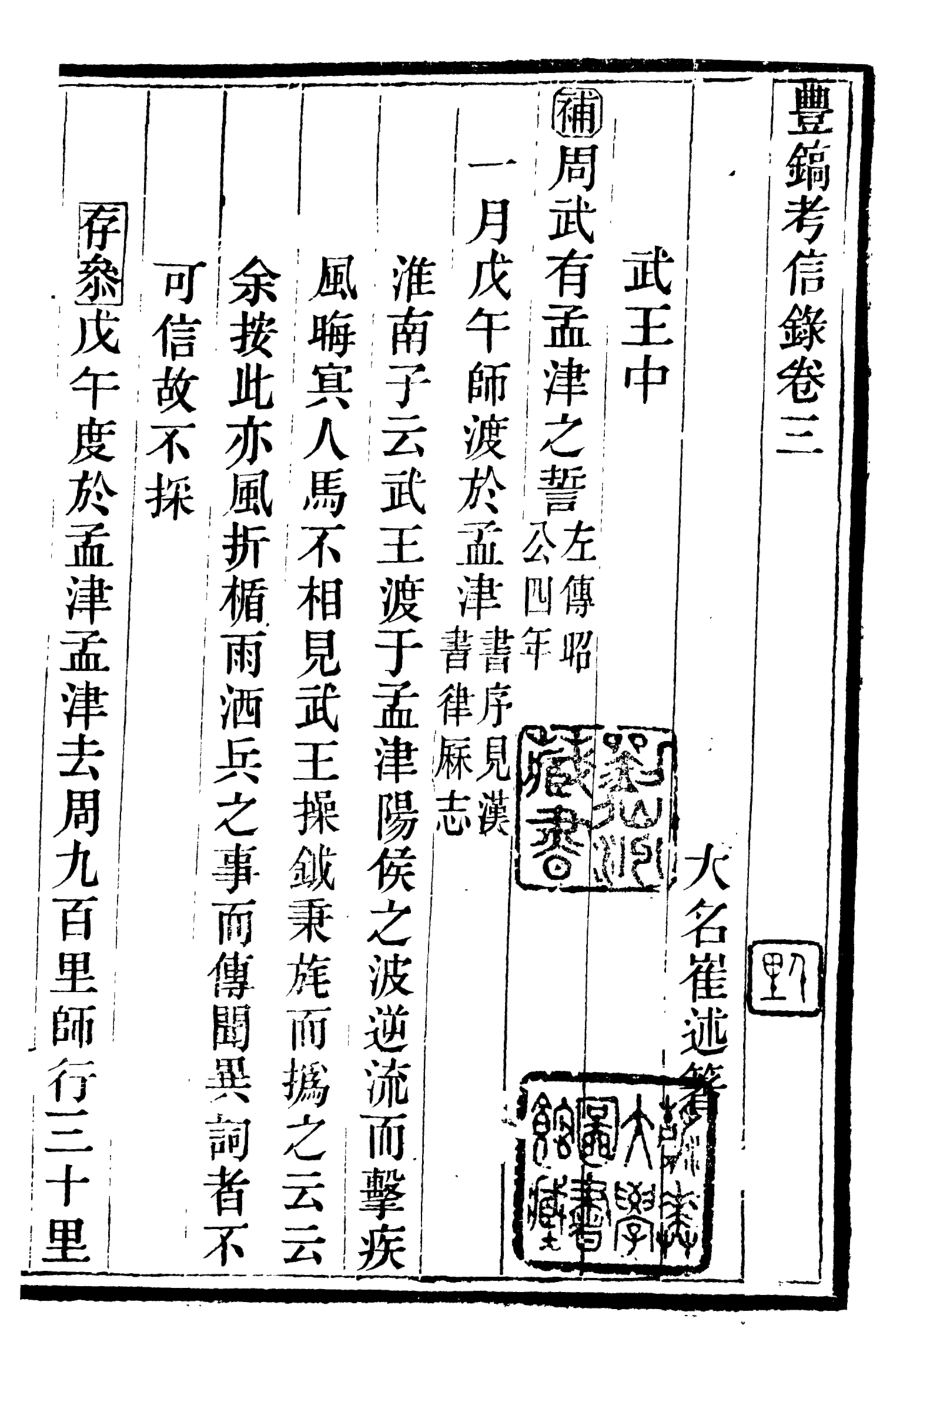 豐鎬考信錄卷三
大名崔述著
武王中
補周武有孟津之誓左傳昭公四年
一月戊午師渡於孟津書序見漢書律厤志
淮南子云武王渡于孟津陽侯之波逆流而擊疾
風晦冥人馬不相見武王操鉞秉旄而撝之云云
余按此亦風折楯雨洒兵之事而傳聞異詞者不
可信故不採
存叅戊午度於孟津孟津去周九百里師行三十里
藏書
大學圖書館藏